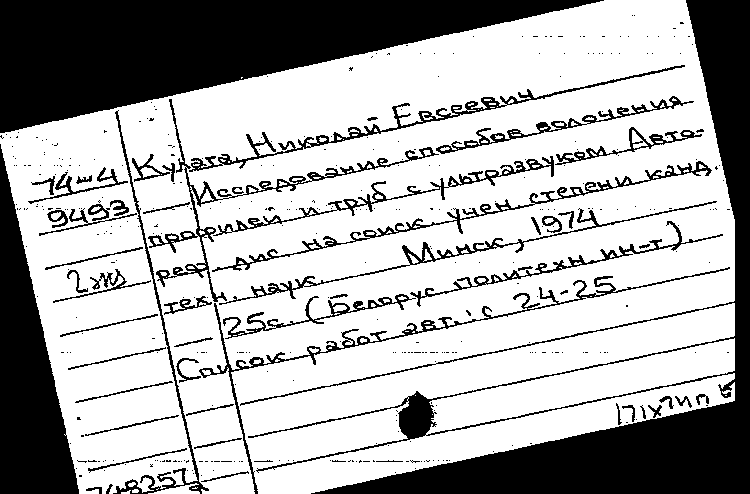 74-4
9493
2 экз
Кулага, Николай Евсеевич
Исследование способов волочения
профилей и труб с ультразвуком. Авто-
реф. дис. на соиск. учен. степени канд.
техн. наук. Минск, 1974
25с. (Белорус. политехн. ин-т).
Список работ авт.: с 24-25
748257